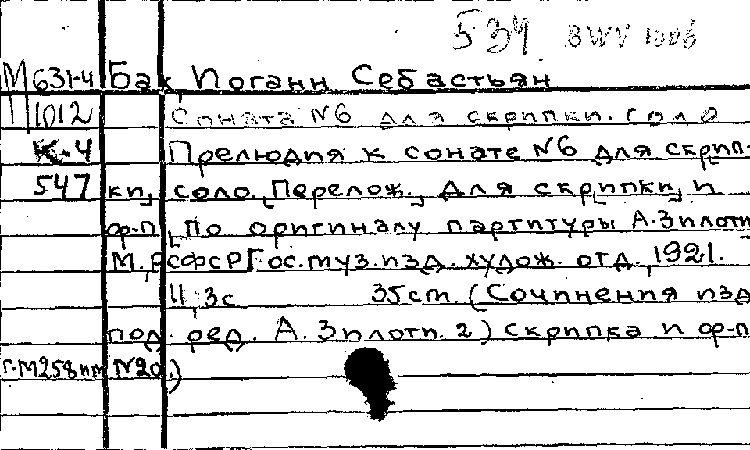 534 BWV 1006
М631-4 Бах Иоганн Себастьян
П1012 Соната №6 для скрипки. соло
К-4 Прелюдия к сонате №6 для скрип-
547 ки, соло. Перелож. для скрипки и
ф-п, по оригиналу партитуры А. Зилоти
М., РСФСР Гос. муз. изд. худож. отд., 1921.
11, 3с 35см. (Сочинения изд
под. ред. А. Зилоти. 2) скрипка и ф-п
г-М258нм №20.)